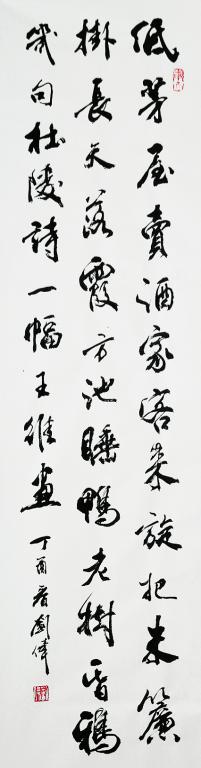 低茅屋賣酒家客来旋把朱簾
掛長天落霞方池睡鴨老樹昏鴉
幾句杜陵詩一幅王維畫
丁酉春劉偉